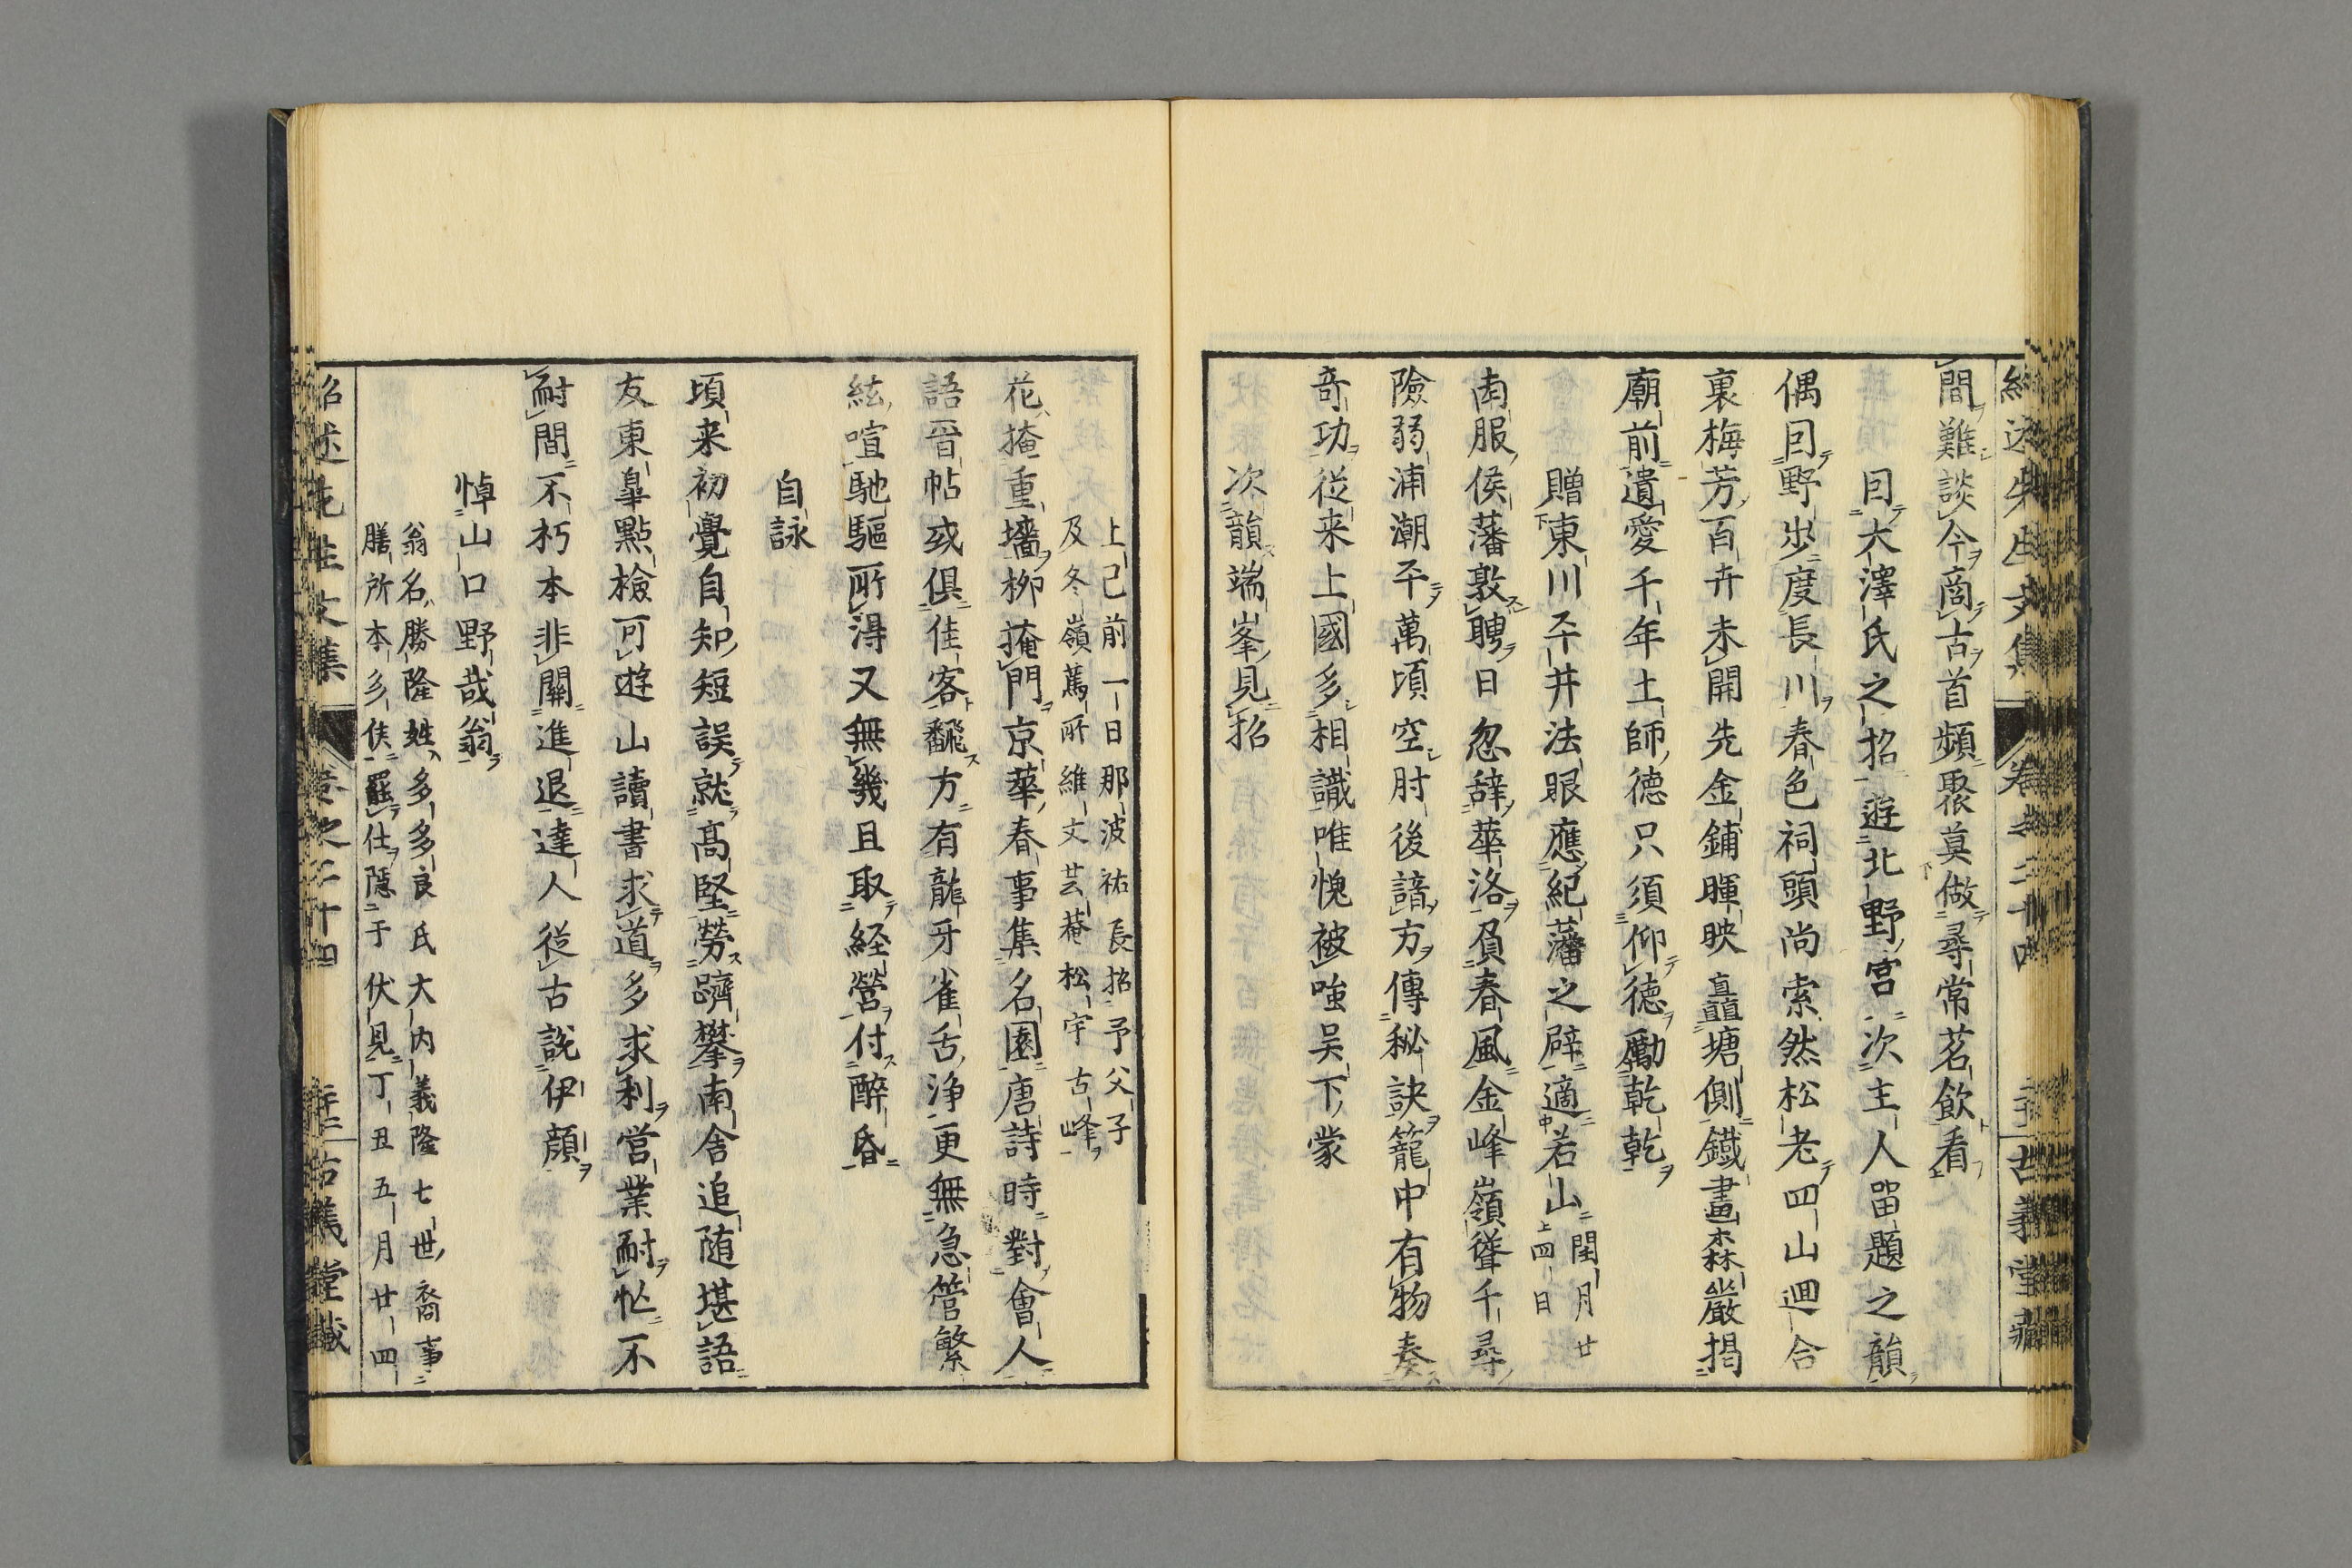 間難談今商古首頻聚莫做尋常茗飲看
回大澤氏之招遊北野宮次主人留題之韻
偶回野步度長川春色祠頭尚索然松老四山迴合
裏梅芳百卉未開先金鋪暉映矗塘側鐵畫森嚴揭
廟前遺愛千年土師德只須仰德勵乾乾
贈東川平井法眼應紀藩之辟適若山閏月廿
四日
南服侯藩敦聘日忽辞華洛負春風金峰嶺聳千尋
險弱浦潮平萬頃空肘後諳方傳秘訣籠中有物奏
奇功從来上國多相識唯愧被嗤吴下蒙
次韻端峯見招
上己前一日那波祐長招予父子
及冬嶺蔫所維文芸菴松宇古峰
花掩重墻柳掩門京華春事集名園唐詩時對會人
語晉帖或俱佳客飜方有龍牙雀舌浄更無急管繁
絃喧馳驅所得又無幾且取経營付醉昏
自詠
頃来初覺自知短誤就高堅勞躋攀南舎追随堪語
友東皐點檢可遊山讀書求道多求利営業耐忙不
耐間不朽本非關進退達人從古説伊顔
悼山口野哉翁
翁名勝隆姓多多良氏大内義隆七世裔事
膳所本多侯罷仕隱于伏見丁丑五月廿四
紹述先生文集 卷之二十四 古義堂藏